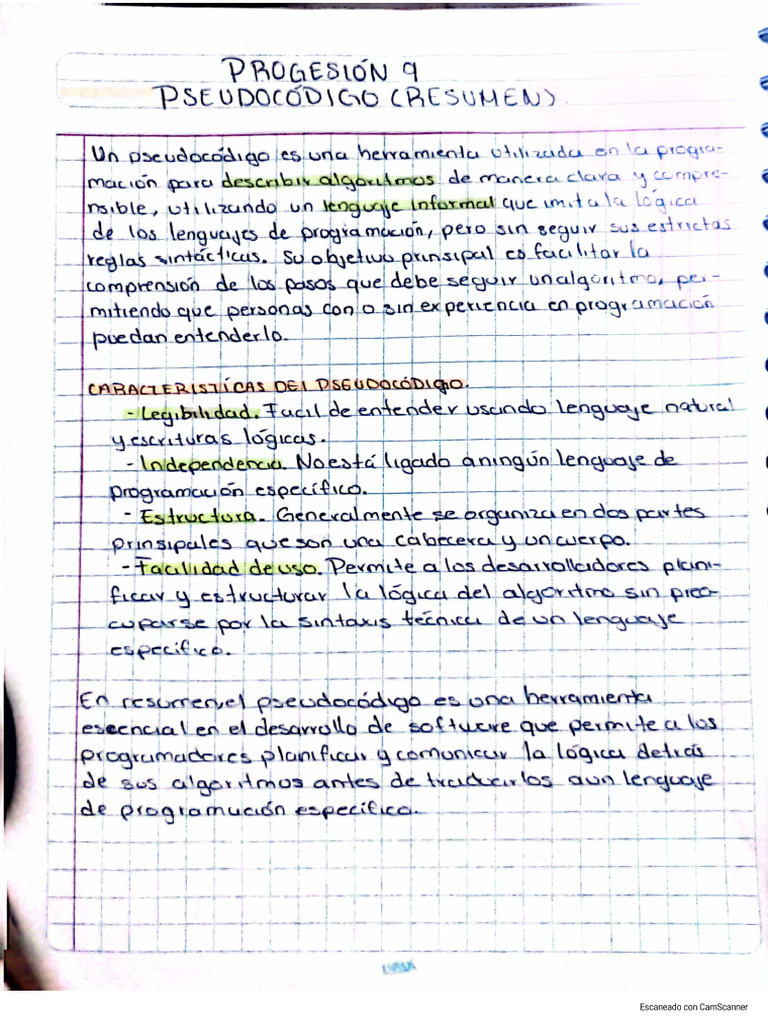 PROGESIÓN 9
PSEUDOCÓDIGO (RESUMEN)
Un pseudocódigo es una herramienta utilizada en la progra-
mación para describir algoritmos de manera clara y compre-
nsible, utilizando un lenguaje informal que imita la lógica
de los lenguajes de programación, pero sin seguir sus estrictas
reglas sintácticas. Su objetivo prinsipal es facilitar la
comprensión de los pasos que debe seguir un algoritmo, per-
mitiendo que personas con o sin experiencia en programación
puedan entenderlo.
CARACTERISTÍCAS DEL PSEUDOCÓDIGO.
- Legibilidad. Facil de entender usando lenguaje natural
y escrituras lógicas.
- Independencia. No está ligado a ningún lenguaje de
programación específico.
- Estructura. Generalmente se organiza en dos partes
prinsipales que son una cabecera y un cuerpo.
- Facilidad de uso. Permite a los desarrolladores plani-
ficar y estructurar la lógica del algoritmo sin preo-
cuparse por la sintaxis técnica de un lenguaje
específico.
En resumen, el pseudocódigo es una herramienta
esencial en el desarrollo de software que permite a los
programadores planificar y comunicar la lógica detrás
de sus algoritmos antes de traducirlos a un lenguaje
de programación específico.
Escaneado con CamScanner